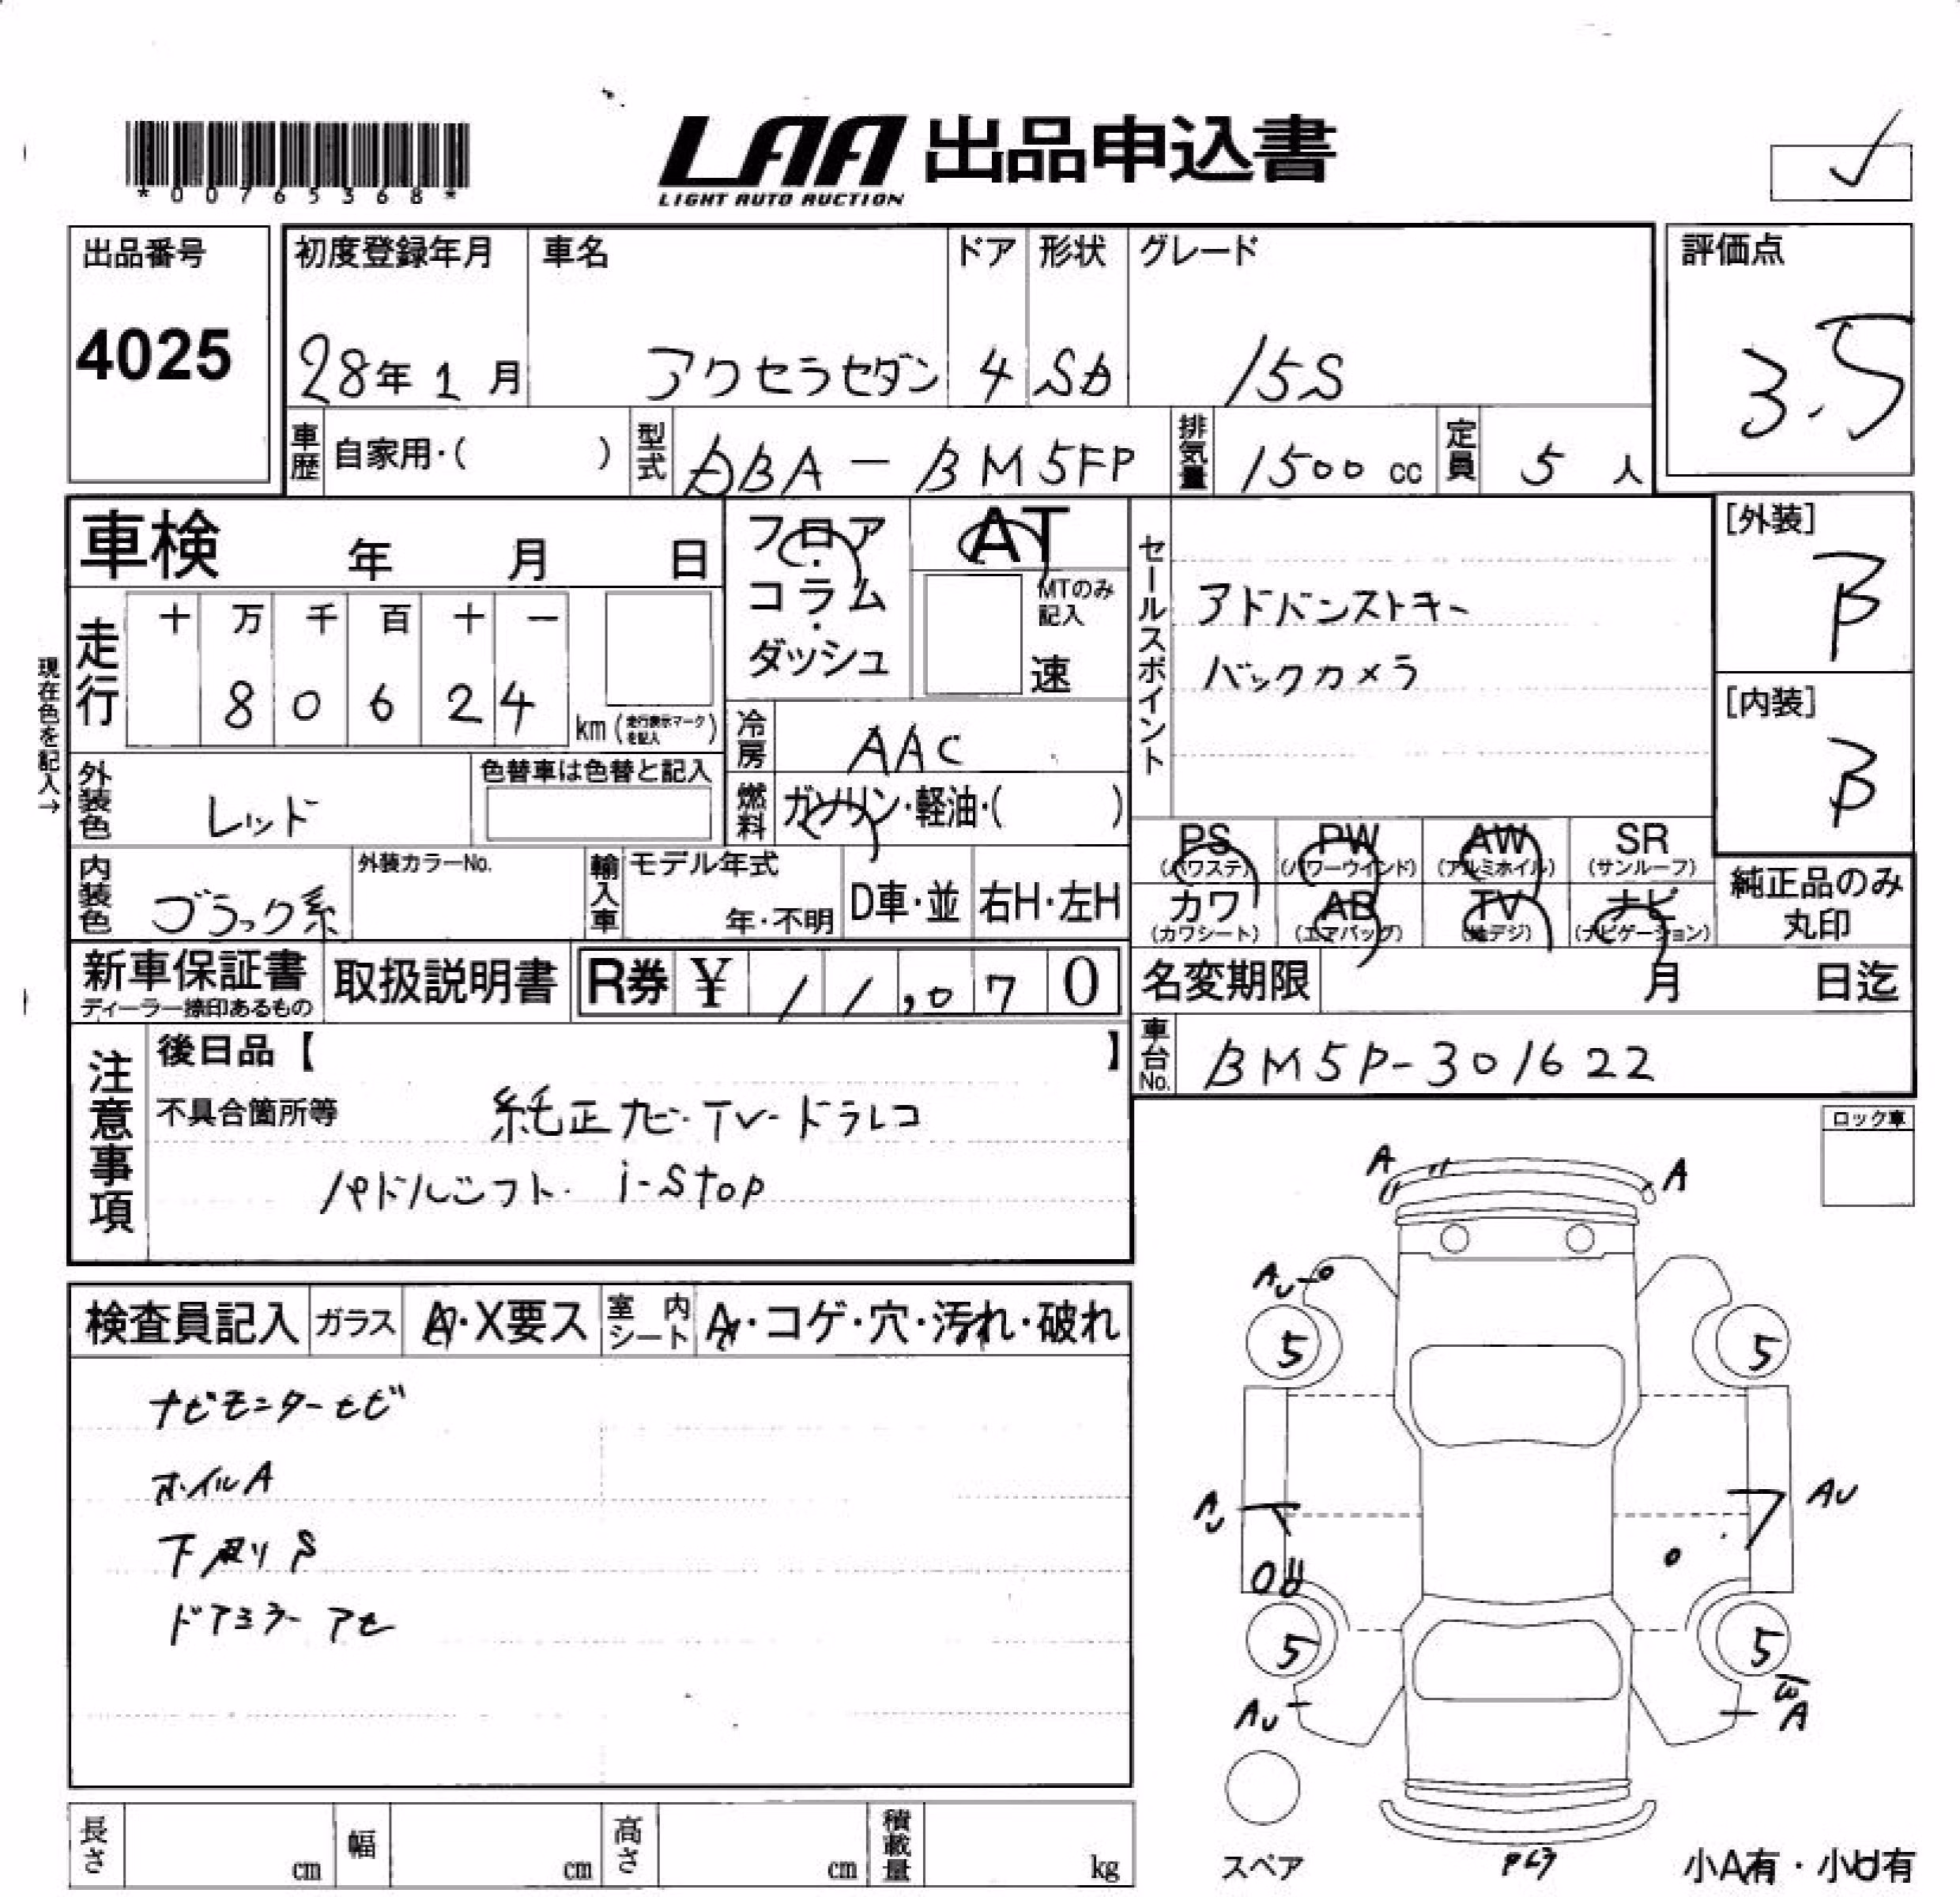 *00765368*
LAA 出品申込書
LIGHT AUTO AUCTION
出品番号
4025
初度登録年月
28年 1月
車名
アクセラセダン
ドア
4
形状
Sd
グレード
15S
評価点
3.5
車歴 自家用・( )
型式 DBA-BM5FP
排気量 1500 cc
定員 5 人
車検 年 月 日
フロア・コラム・ダッシュ
AT
MTのみ記入
速
セールスポイント
アドバンストキー
バックカメラ
[外装]
B
[内装]
B
現在色を記入→
走行
十 万 千 百 十 一
8 0 6 2 4
km (走行表示マークを記入)
冷房 AAC
外装色 レッド
色替車は色替と記入
燃料 ガソリン・軽油・( )
PS (パワステ)
PW (パワーウインド)
AW (アルミホイル)
SR (サンルーフ)
カワ (カワシート)
AB (エアバッグ)
TV (地デジ)
ナビ (ナビゲーション)
純正品のみ丸印
内装色 ブラック系
外装カラーNo.
輸入車
モデル年式
年・不明
D車・並
右H・左H
新車保証書
ディーラー捺印あるもの
取扱説明書
R券 ¥ 11,070
名変期限 月 日迄
車台No. BM5P-301622
注意事項
後日品【 】
不具合箇所等
純正ナビ・TV・ドラレコ
パドルシフト・ i-stop
ロック車
検査員記入
ガラス
A・X要ス
室内シート
A・コゲ・穴・汚れ・破れ
ナビモニターヒビ
ホイルA
下廻りS
ドアミラー アセ
A
A
AU
5
5
AU
AU
5
5
AU
W
A
スペア
小A有・小U有
長さ cm
幅 cm
高さ cm
積載量 kg